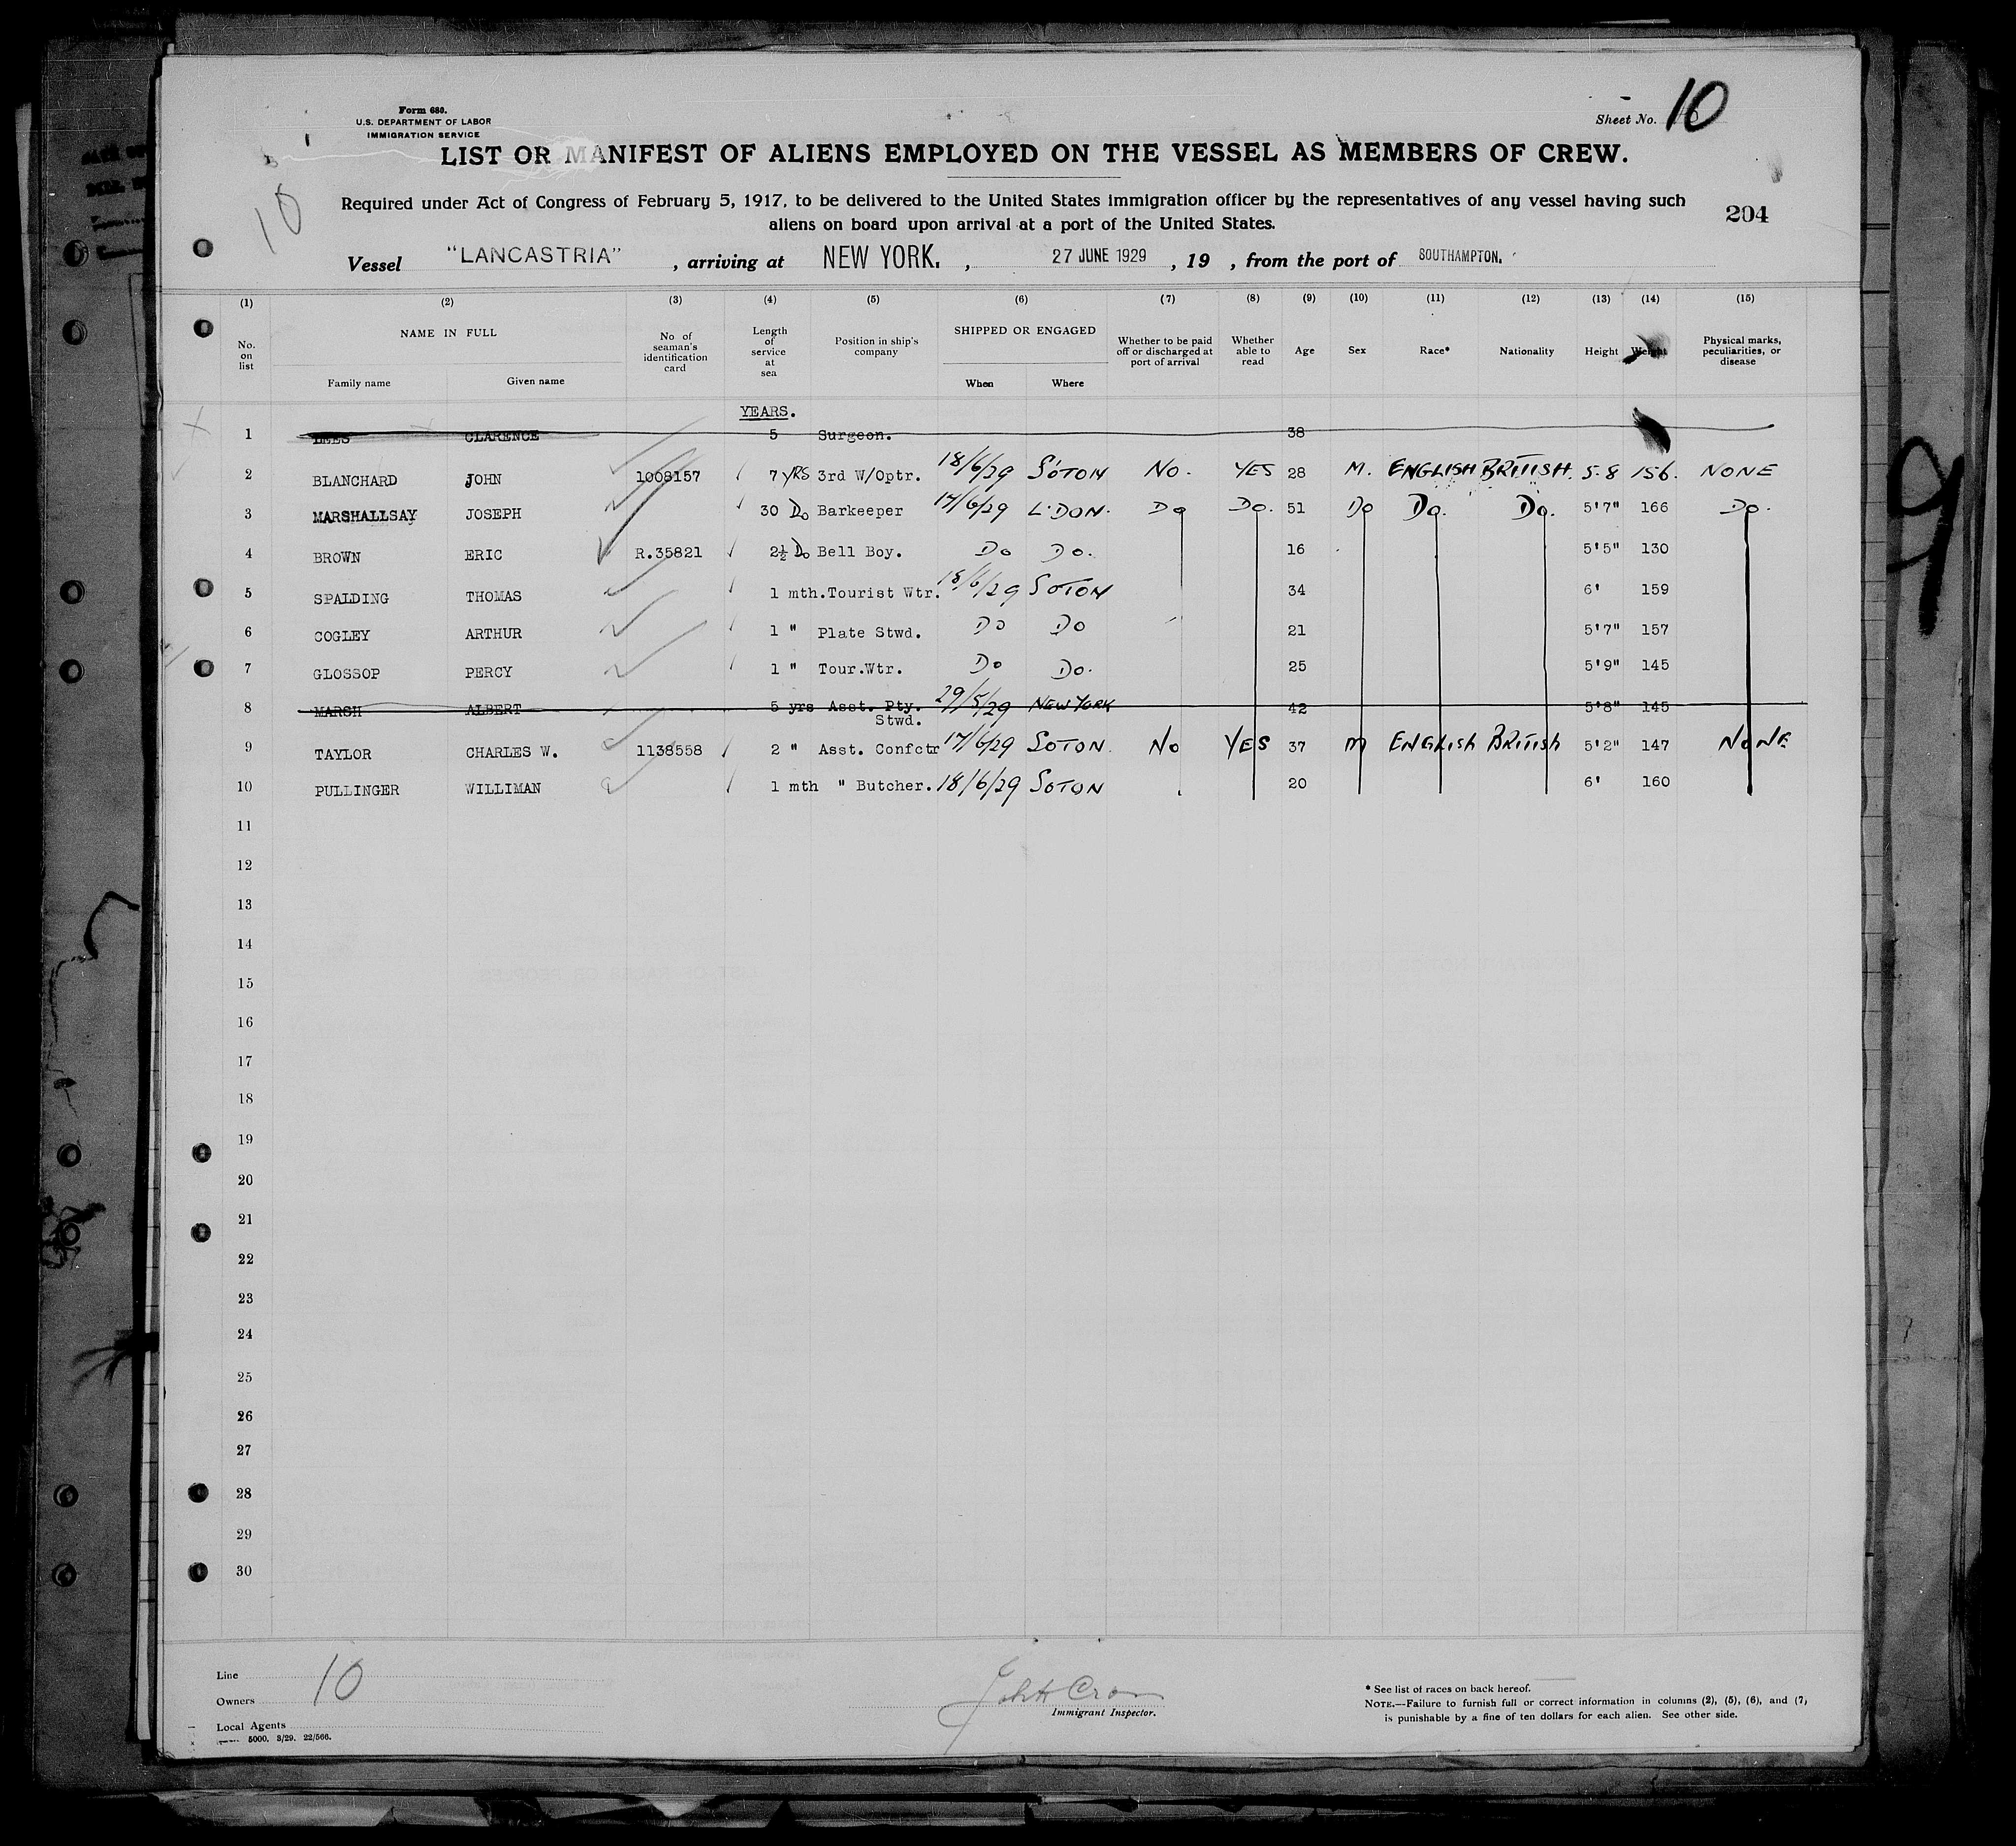 Form 680.
U.S. DEPARTMENT OF LABOR
IMMIGRATION SERVICE
Sheet No. 10
LIST OR MANIFEST OF ALIENS EMPLOYED ON THE VESSEL AS MEMBERS OF CREW.
10
Required under Act of Congress of February 5, 1917, to be delivered to the United States immigration officer by the representatives of any vessel having such
aliens on board upon arrival at a port of the United States.
204
Vessel "LANCASTRIA" , arriving at NEW YORK. , 27 JUNE 1929 , 19 , from the port of SOUTHAMPTON.
(1) (2) (3) (4) (5) (6) (7) (8) (9) (10) (11) (12) (13) (14) (15)
No. on list NAME IN FULL Family name Given name No of seaman's identification card Length of service at sea Position in ship's company SHIPPED OR ENGAGED When Where Whether to be paid off or discharged at port of arrival Whether able to read Age Sex Race* Nationality Height Weight Physical marks, peculiarities, or disease
YEARS.
1 LEES CLARENCE 5 Surgeon. 38
2 BLANCHARD JOHN 1008157 7 YRS 3rd W/Optr. 18/6/29 S'OTON NO. YES 28 M. ENGLISH BRITISH. 5-8 156. NONE
3 MARSHALLSAY JOSEPH 30 Do Barkeeper 17/6/29 L'DON. Do Do. 51 Do Do. Do. 5'7" 166 Do.
4 BROWN ERIC R.35821 2½ Do Bell Boy. Do Do. 16 5'5" 130
5 SPALDING THOMAS 1 mth. Tourist Wtr. 18/6/29 SOTON 34 6' 159
6 COGLEY ARTHUR 1 " Plate Stwd. Do Do 21 5'7" 157
7 GLOSSOP PERCY 1 " Tour.Wtr. Do Do. 25 5'9" 145
8 MARSH ALBERT 5 yrs Asst. Pty. 29/5/29 NEW YORK 42 5'8" 145
Stwd.
9 TAYLOR CHARLES W. 1138558 2 " Asst. Confctr 17/6/29 SOTON. No YES 37 M ENGLISH BRITISH 5'2" 147 NONE
10 PULLINGER WILLIMAN 1 mth " Butcher. 18/6/29 SOTON 20 6' 160
11
12
13
14
15
16
17
18
19
20
21
22
23
24
25
26
27
28
29
30
Line
Owners 10
Local Agents
5000. 3/29. 22/566.
Immigrant Inspector.
* See list of races on back hereof.
NOTE.—Failure to furnish full or correct information in columns (2), (5), (6), and (7,
is punishable by a fine of ten dollars for each alien. See other side.
9